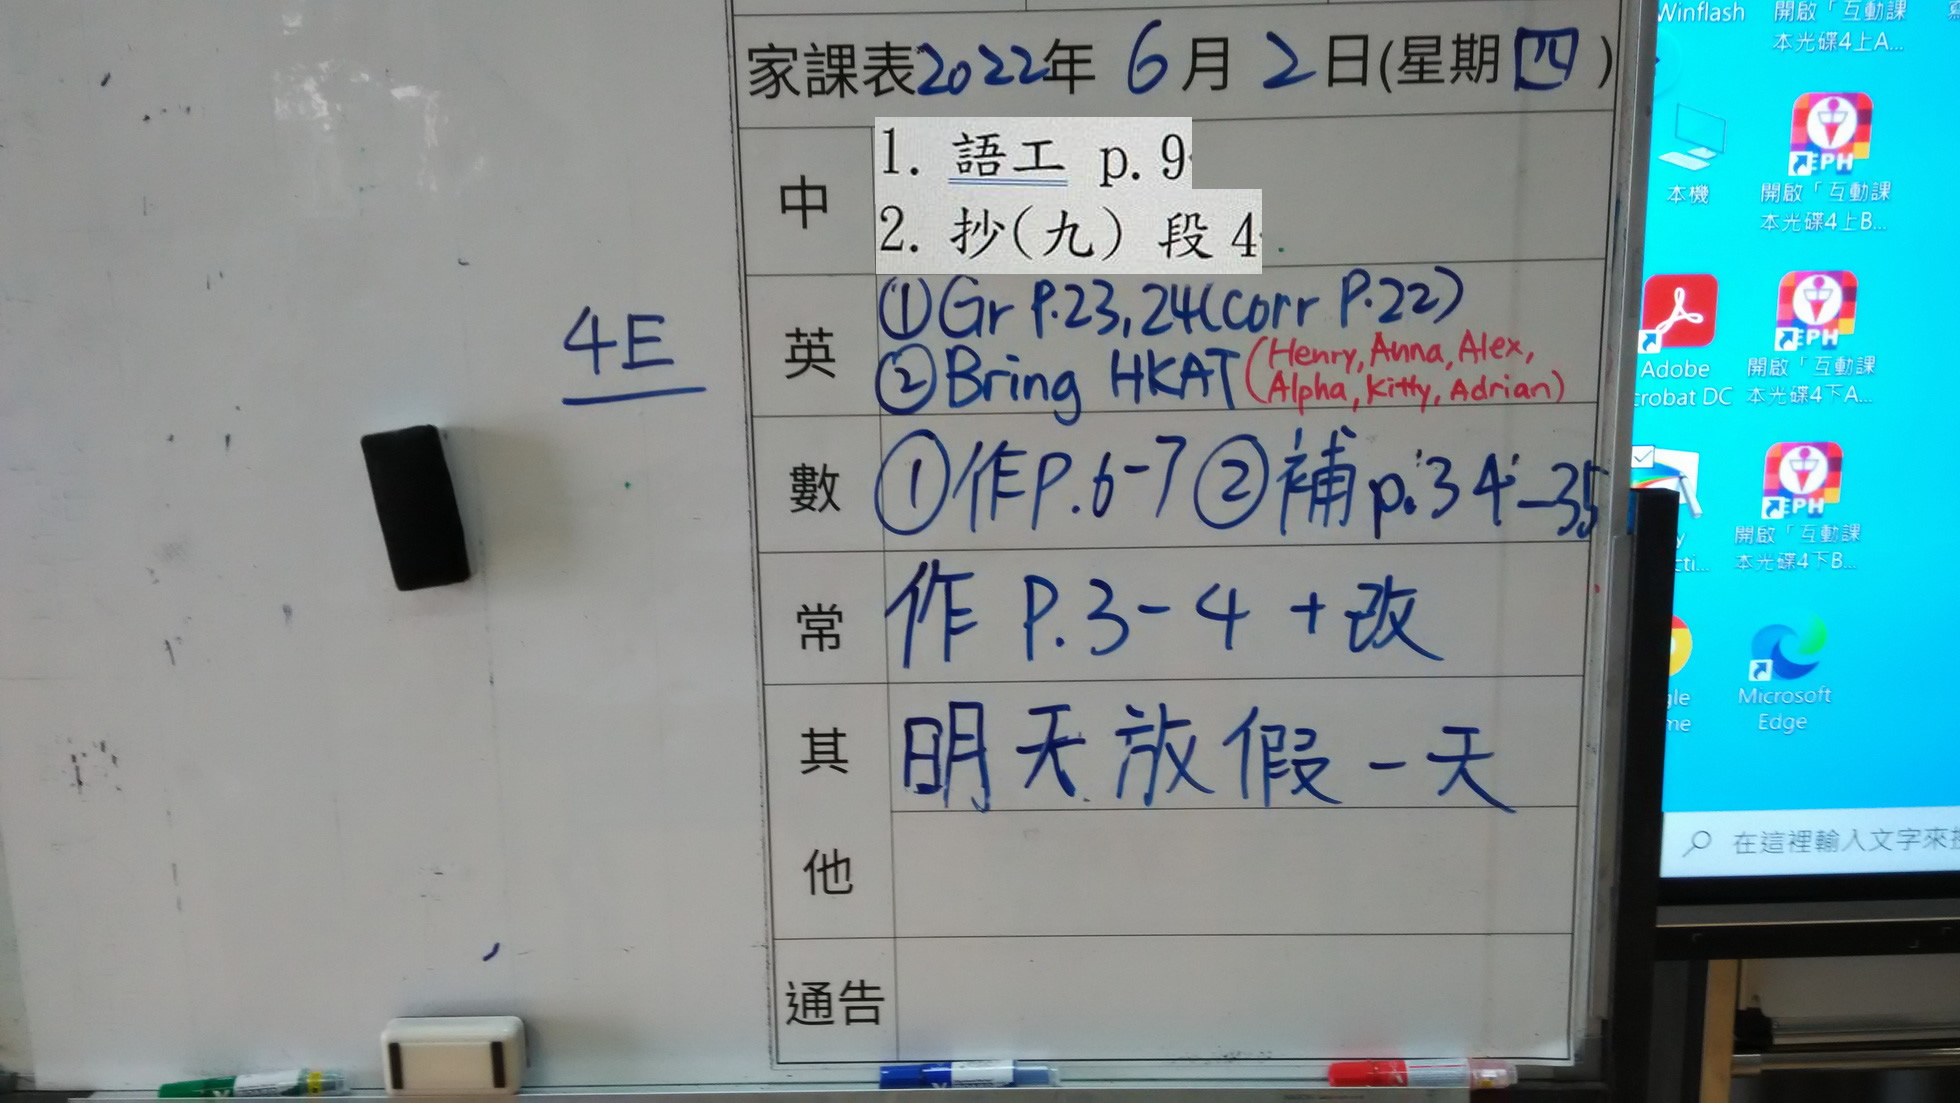 家課表2022年 6月 2日(星期四)
中
1. 語工 p.9
2. 抄(九) 段4
4E
英
①Gr P.23,24(corr P.22)
②Bring HKAT (Henry, Anna, Alex,
Alpha, Kitty, Adrian)
數
①作P.6-7 ②補p.34-35
常
作 P.3-4 +改
其他
明天放假一天
通告
Winflash
開啟「互動課
本光碟4上A...
本機
EPH
開啟「互動課
本光碟4上B...
Adobe
crobat DC
EPH
開啟「互動課
本光碟4下A...
EPH
開啟「互動課
本光碟4下B...
Microsoft
Edge
在這裡輸入文字來